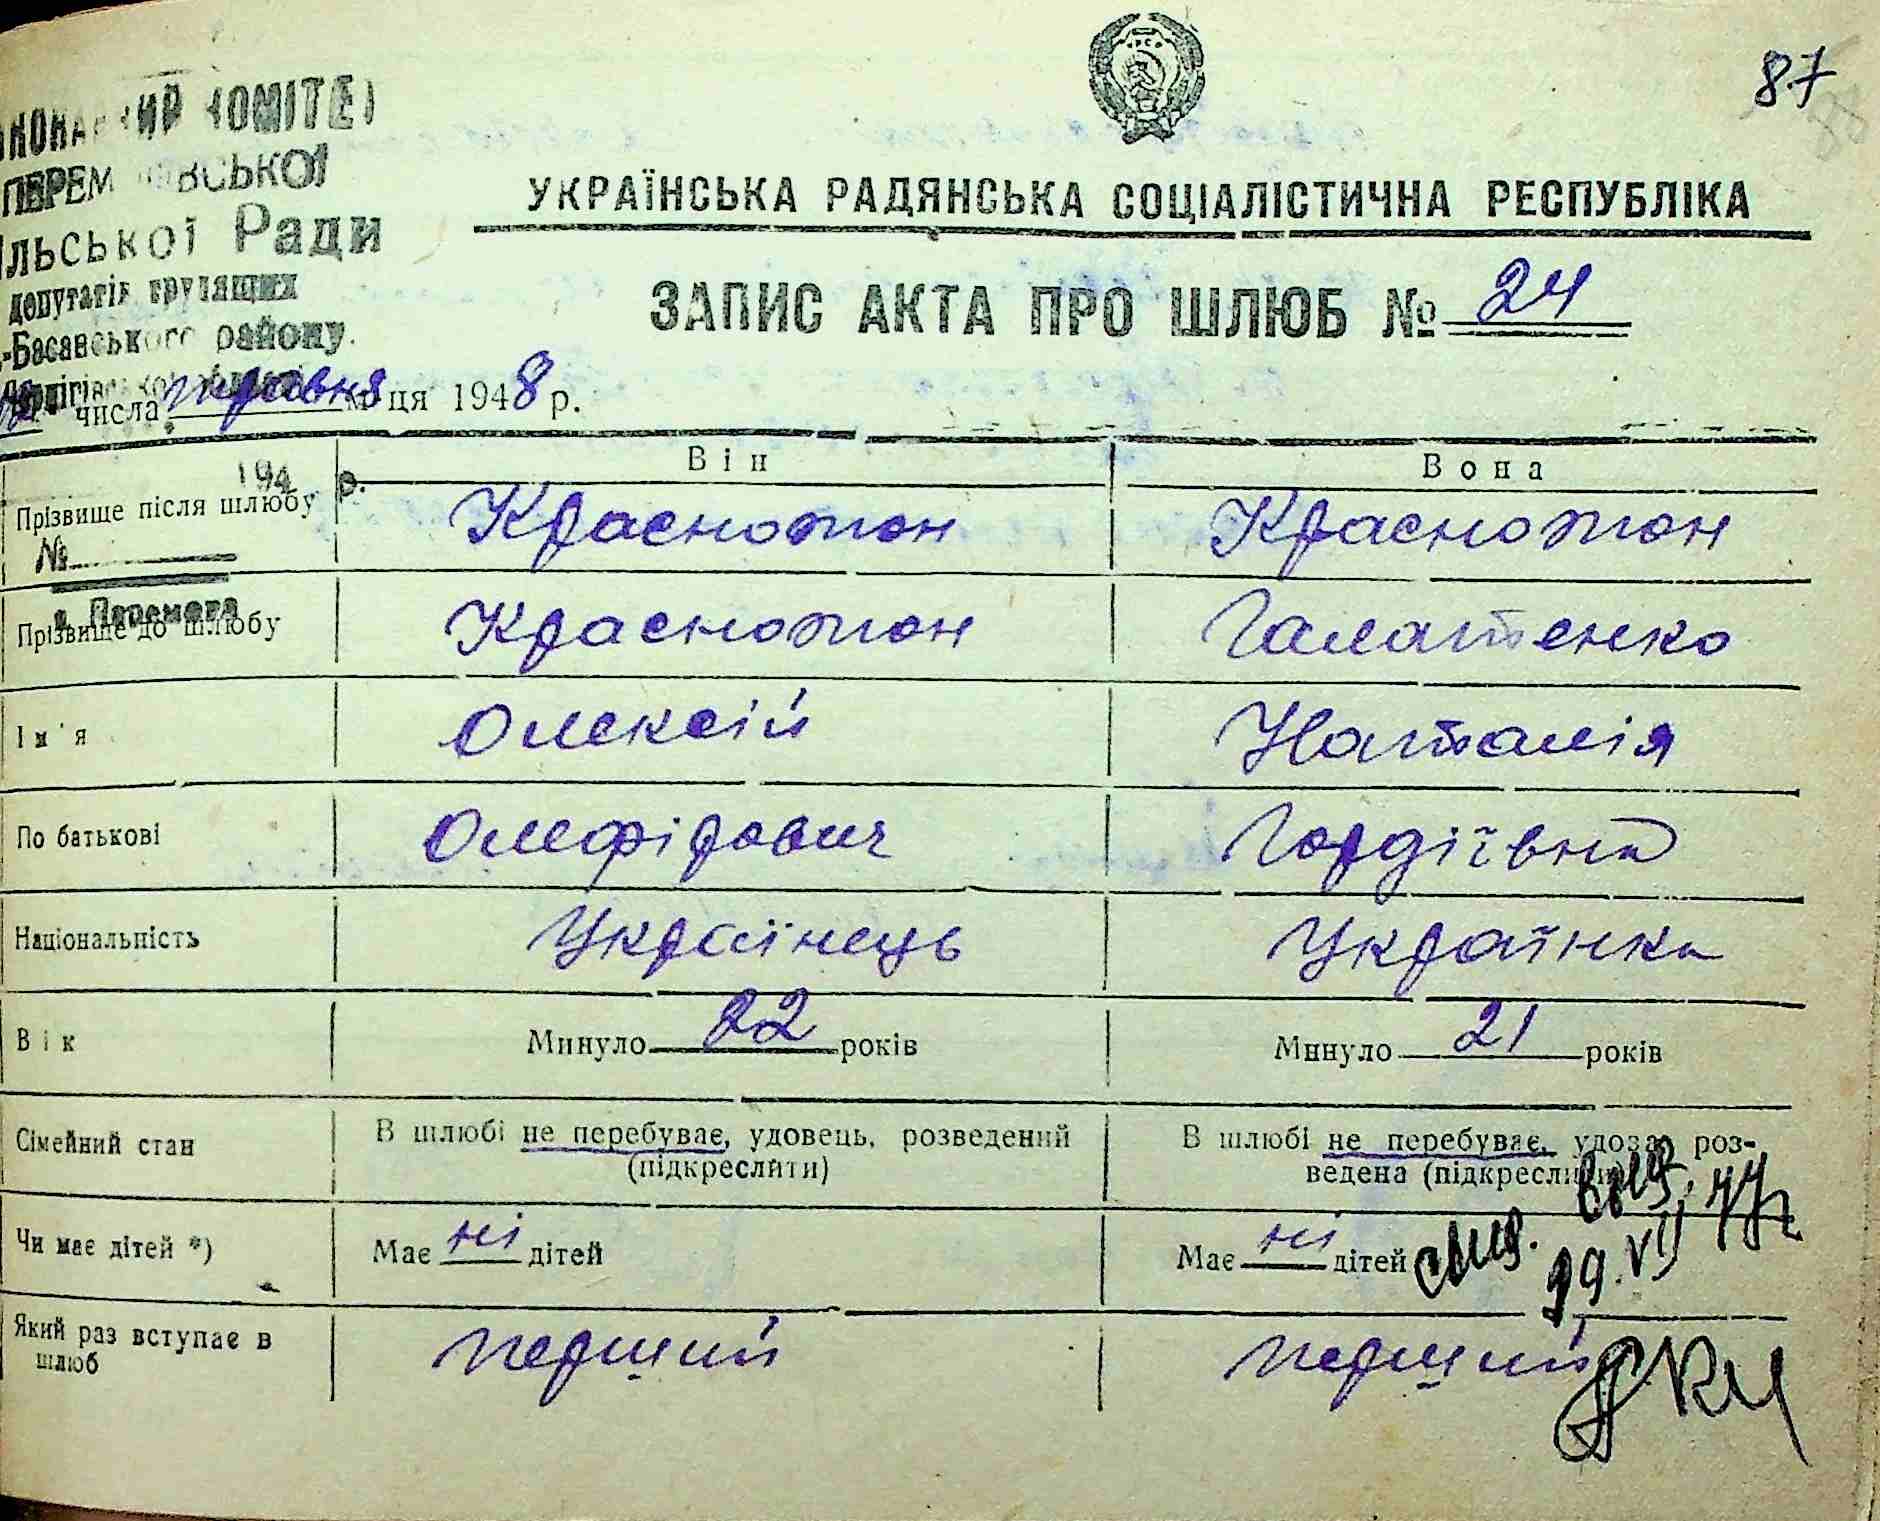 87
КОМІТЕТ
ПЕРЕМ ВСЬКОЇ
ІЛЬСЬКОЇ Ради
депутатів трудящих
-Басанського району
УКРАЇНСЬКА РАДЯНСЬКА СОЦІАЛІСТИЧНА РЕСПУБЛІКА
ЗАПИС АКТА ПРО ШЛЮБ № 24
числа травня м-ця 1948 р.
194 р.
Він Вона
Прізвище після шлюбу Красножон Красножон
№
с. Перемога
Прізвище до шлюбу Красножон Галатенко
Ім'я Олексій Наталія
По батькові Олефірович Гордіївна
Національність Українець Українка
Вік Минуло 22 років Минуло 21 років
Сімейний стан В шлюбі не перебуває, удовець, розведений В шлюбі не перебуває, удова, роз-
(підкреслити) ведена (підкреслити)
Чи має дітей *) Має ні дітей Має ні дітей
29.VII 77
Який раз вступає в перший перший
шлюб